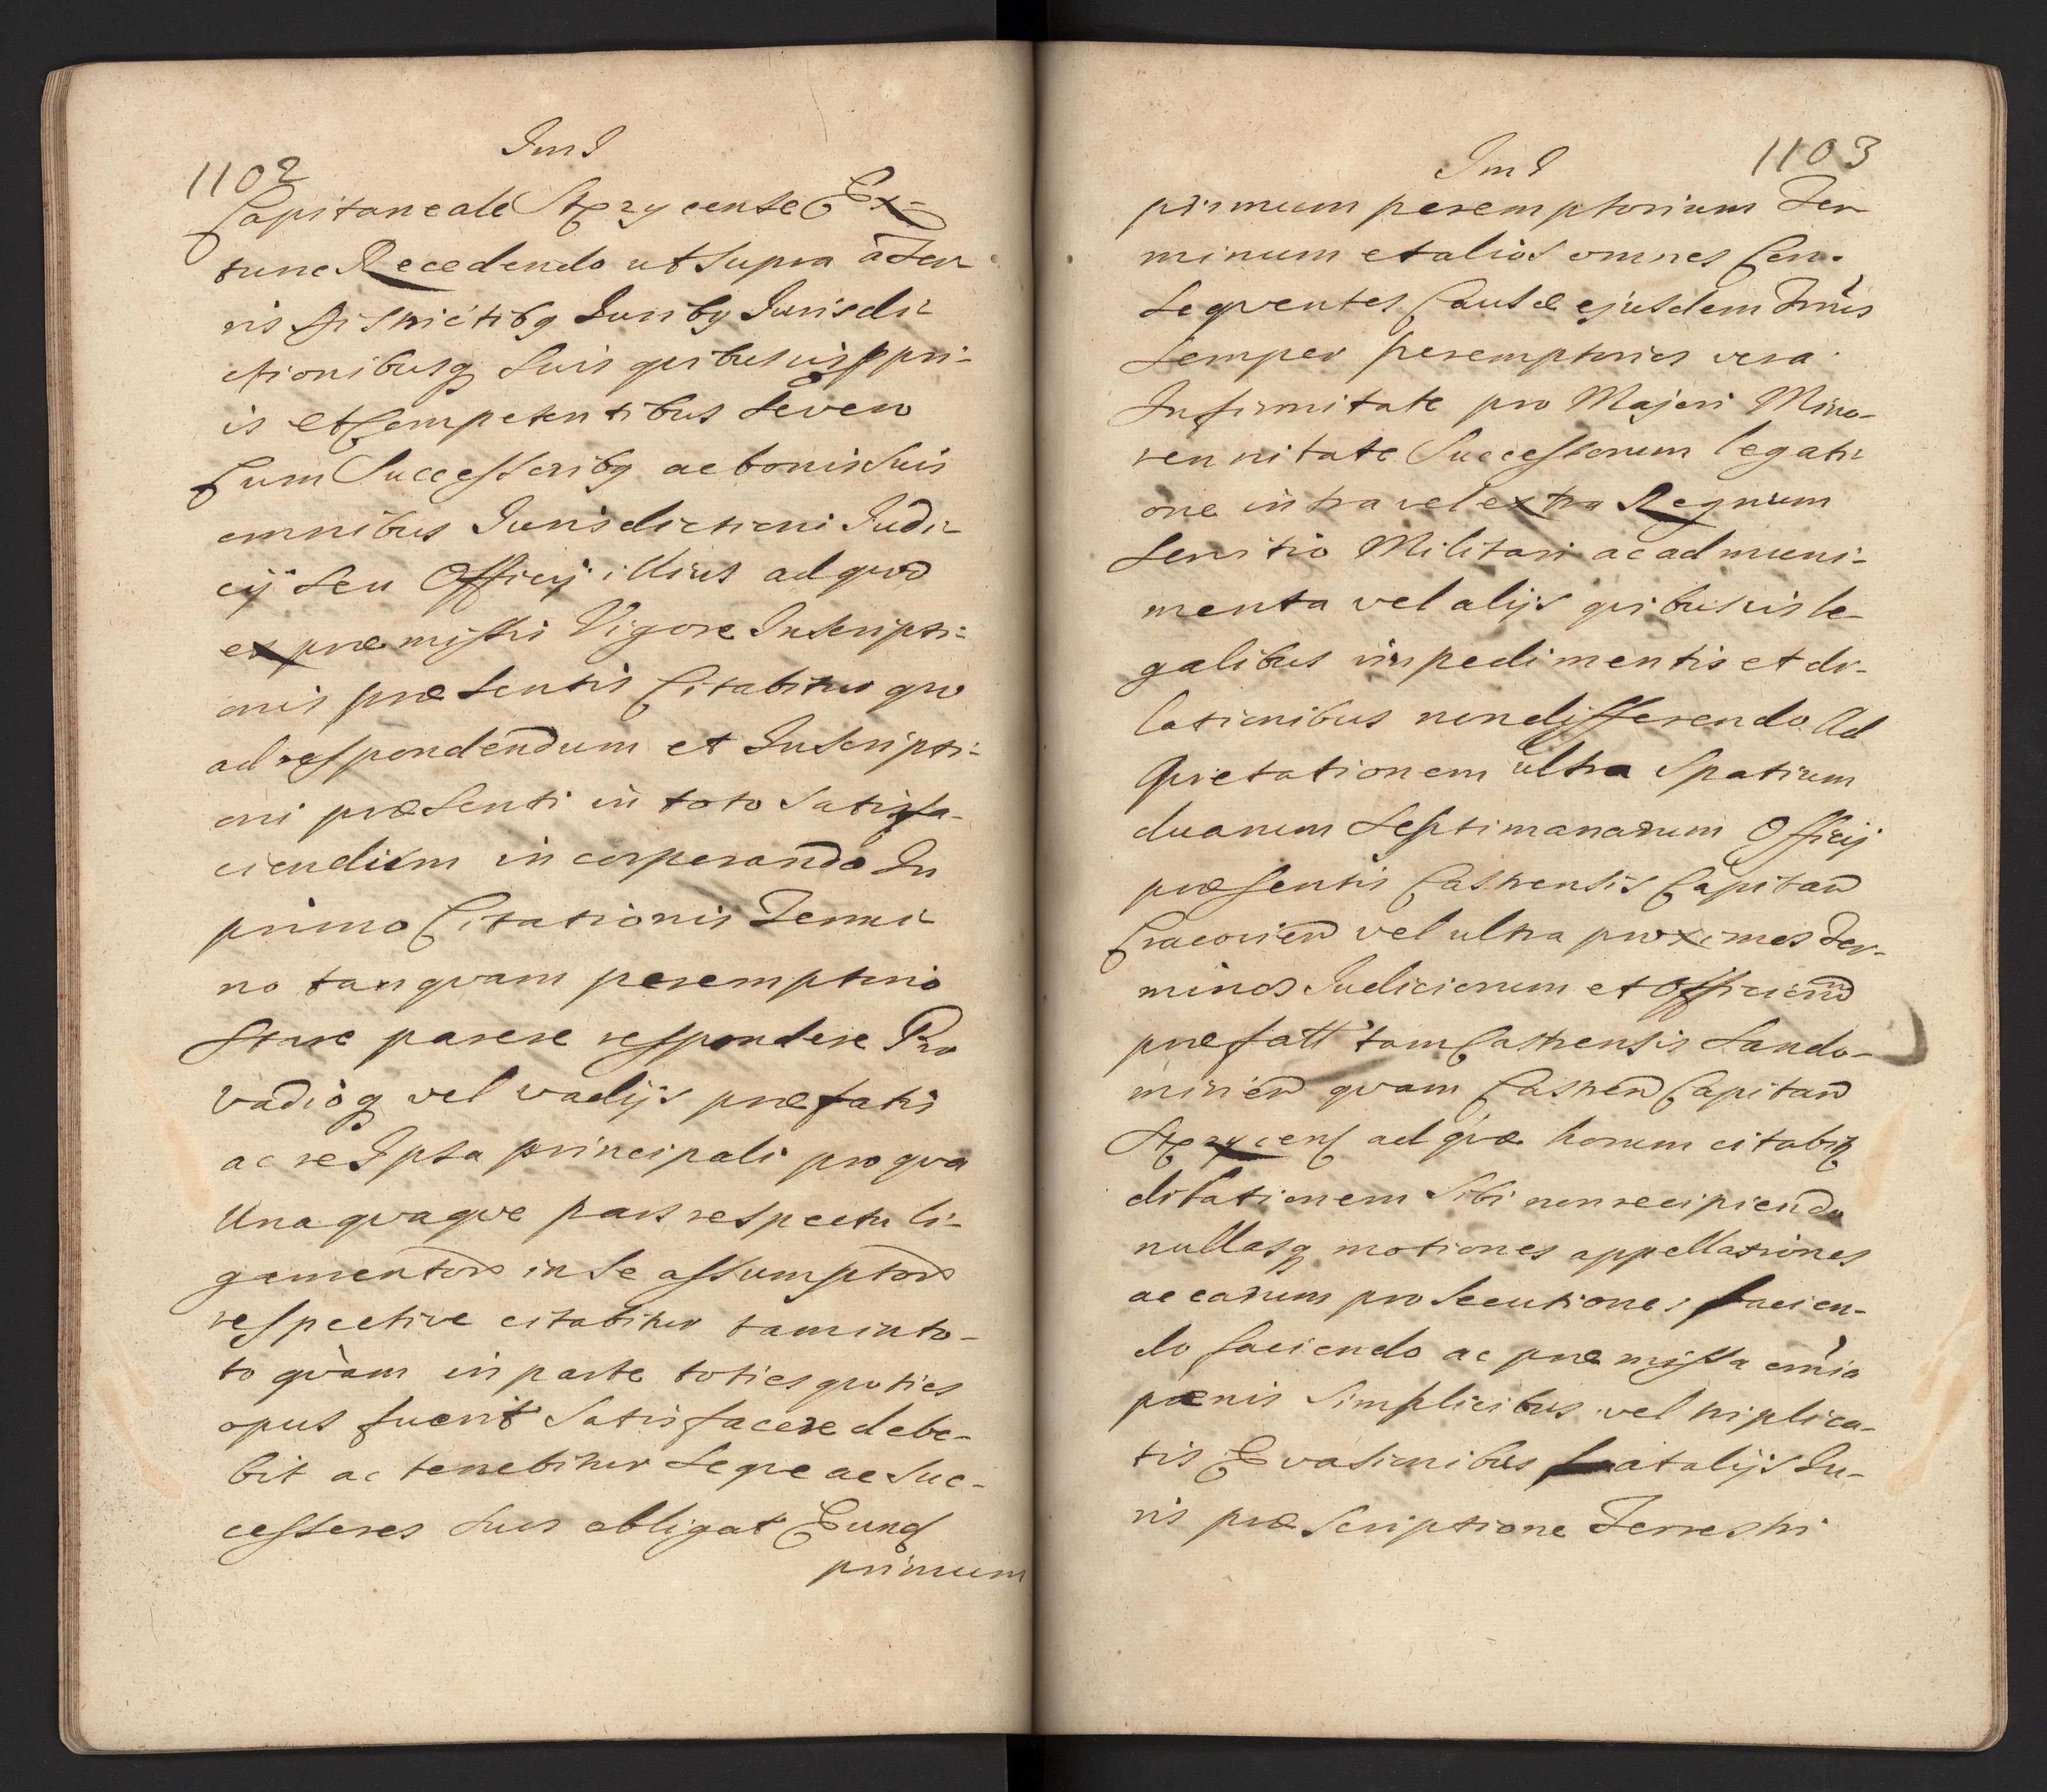 1102
Capitaneale Stęzycense Ex=
tunc Recedendo ut supra a Ter
ris Districtibq Juribq Jurisdi
ctionibusq suis quibusvis ppri-
is et Competentibus se vero
Cum Successoribq ac bonis suis
omnibus Jurisdictioni Judi
cij seu Officij illius ad quod
ex præmissis Vigore Inscripti=
onis præsentis Citabitur quo
ad respondendum et Inscripti-
oni præsenti in toto satisfa-
ciendum incorporando In
primo Citationis Termi
no tanquam peremptorio
Stare parere respondere Pro
vadioq vel vadijs præfatis
ac re Ipsa principali pro qua
Unaquaque pars respectu li-
gamentor in se assumptor
respective citabitur tam in to-
to quàm in parte toties quoties
opus fuerit Satisfacere debe-
bit ac tenebitur seque ac Suc-
cessores suos obligat Eund
primum
1103
primum peremptorium Ter
minum et alios omnes Con-
sequentes Causæ ejusdem Trnis
semper peremptorios vera
Infirmitate pro Majori Mino-
rennitate Successorum legati
one intra vel extra Regnum
servitio Militari ac ad muni-
menta vel alijs quibusvis le-
galibus impedimentis et di-
lationibus non differendo Ad
Quietationem ultra Spatium
duarum Septimanarum Officij
præsentis Castrensis Capitan
Cracovien vel ultra proximos Ter-
minos Judiciorum et Officiorum
præfatt tam Castrensis Sando-
mirien quam Castren Capitan
Stęzycens ad quæ horum citabitr
dilationem sibi non recipiendo
nullasq motiones appellationes
ac earum prosecutiones facien-
do faciendo ac præmissa omnia
pœnis Simplicibus vel triplica-
tis Evasionibus atq alijs Ju-
ris præscriptione Terrestri